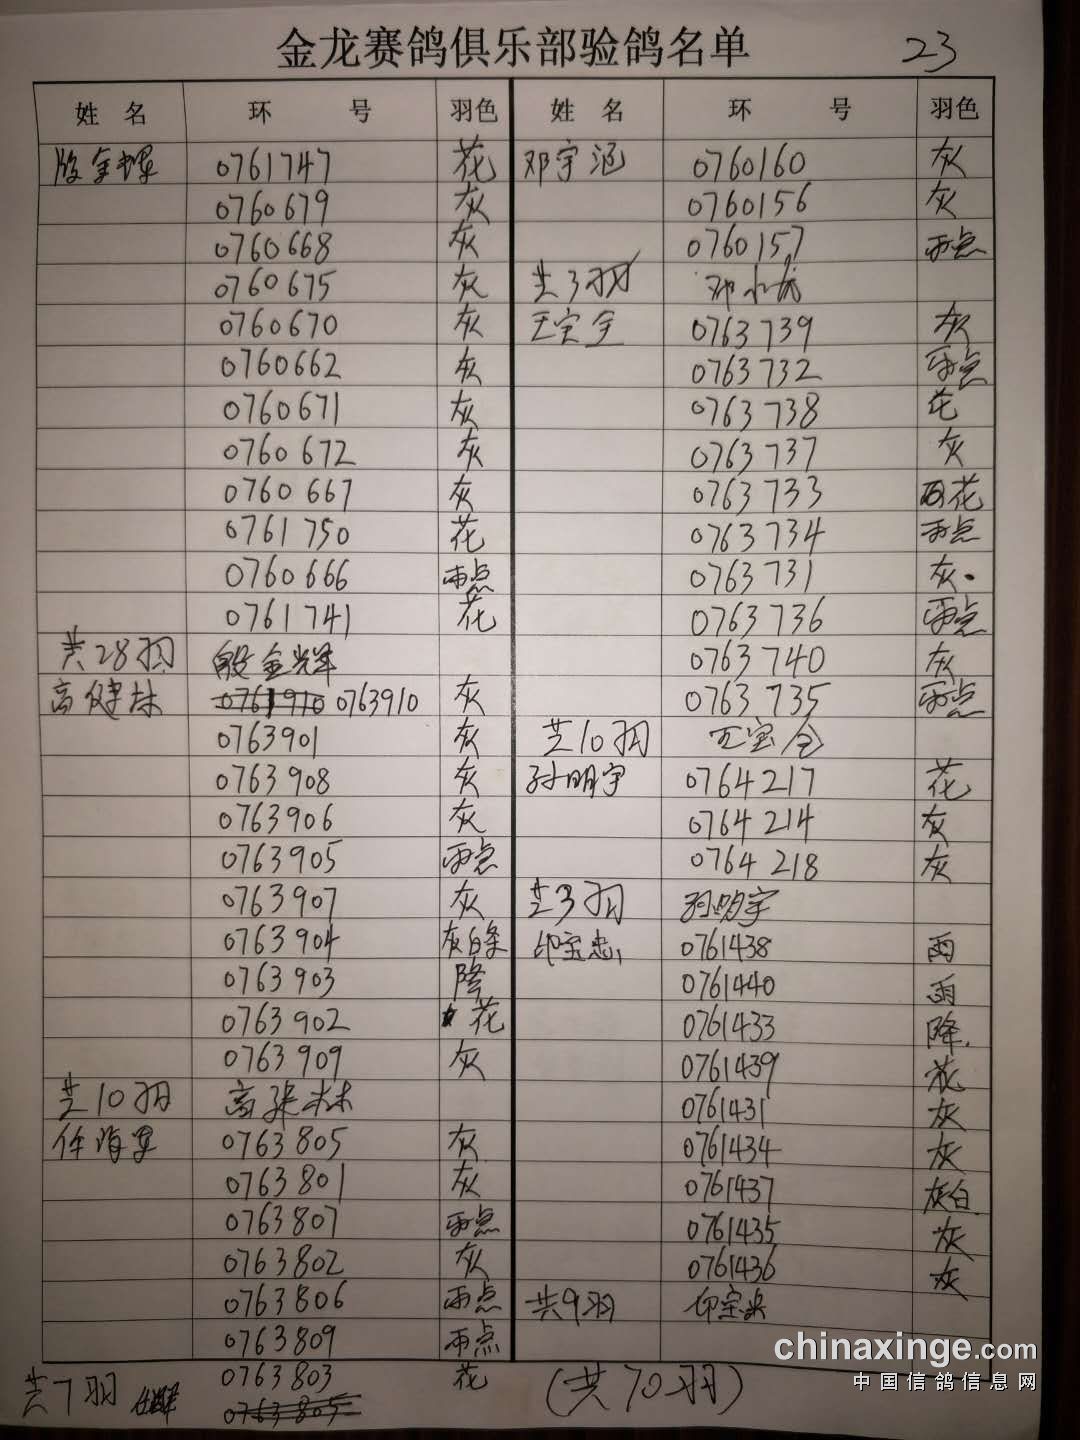 金龙赛鸽俱乐部验鸽名单
23
姓名 环号 羽色
殷金辉 0761747 花
0760679 灰
0760668 灰
0760675 灰
0760670 灰
0760662 灰
0760671 灰
0760672 灰
0760667 灰
0761750 花
0760666 雨点
0761741 花
共28羽 殷金辉
高健林 0763910 灰
0763901 灰
0763908 灰
0763906 灰
0763905 雨点
0763907 灰
0763904 灰白条
0763903 降
0763902 花
0763909 灰
共10羽
0763805 灰
0763801 灰
0763807 雨点
0763802 灰
0763806 雨点
0763809 雨点
共7羽 0763803 花
0763805
姓名 环号 羽色
邓宇涵 0760160 灰
0760156 灰
0760157 雨点
共3羽
王宝全 0763739 灰
0763732 雨点
0763738 花
0763737 灰
0763733 雨花
0763734 雨点
0763731 灰
0763736 雨点
0763740 灰
0763735 雨点
共10羽 王宝全
孙明宇 0764217 花
0764214 灰
0764218 灰
共3羽 孙明宇
印宝忠 0761438 雨
0761440 雨
0761433 降
0761439 花
0761431 灰
0761434 灰
0761437 灰白
0761435 灰
0761436 灰
共9羽
(共70羽)
chinaxinge.com
中国信鸽信息网